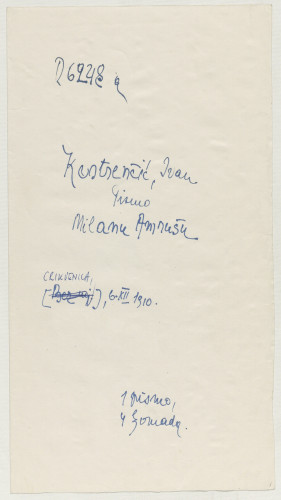 R6248 a
Kostrenčić, Ivan
Pismo
Milanu Amrušu
CRIKVENICA,
[], 6-XII 1910.
1 pismo,
4 komada.